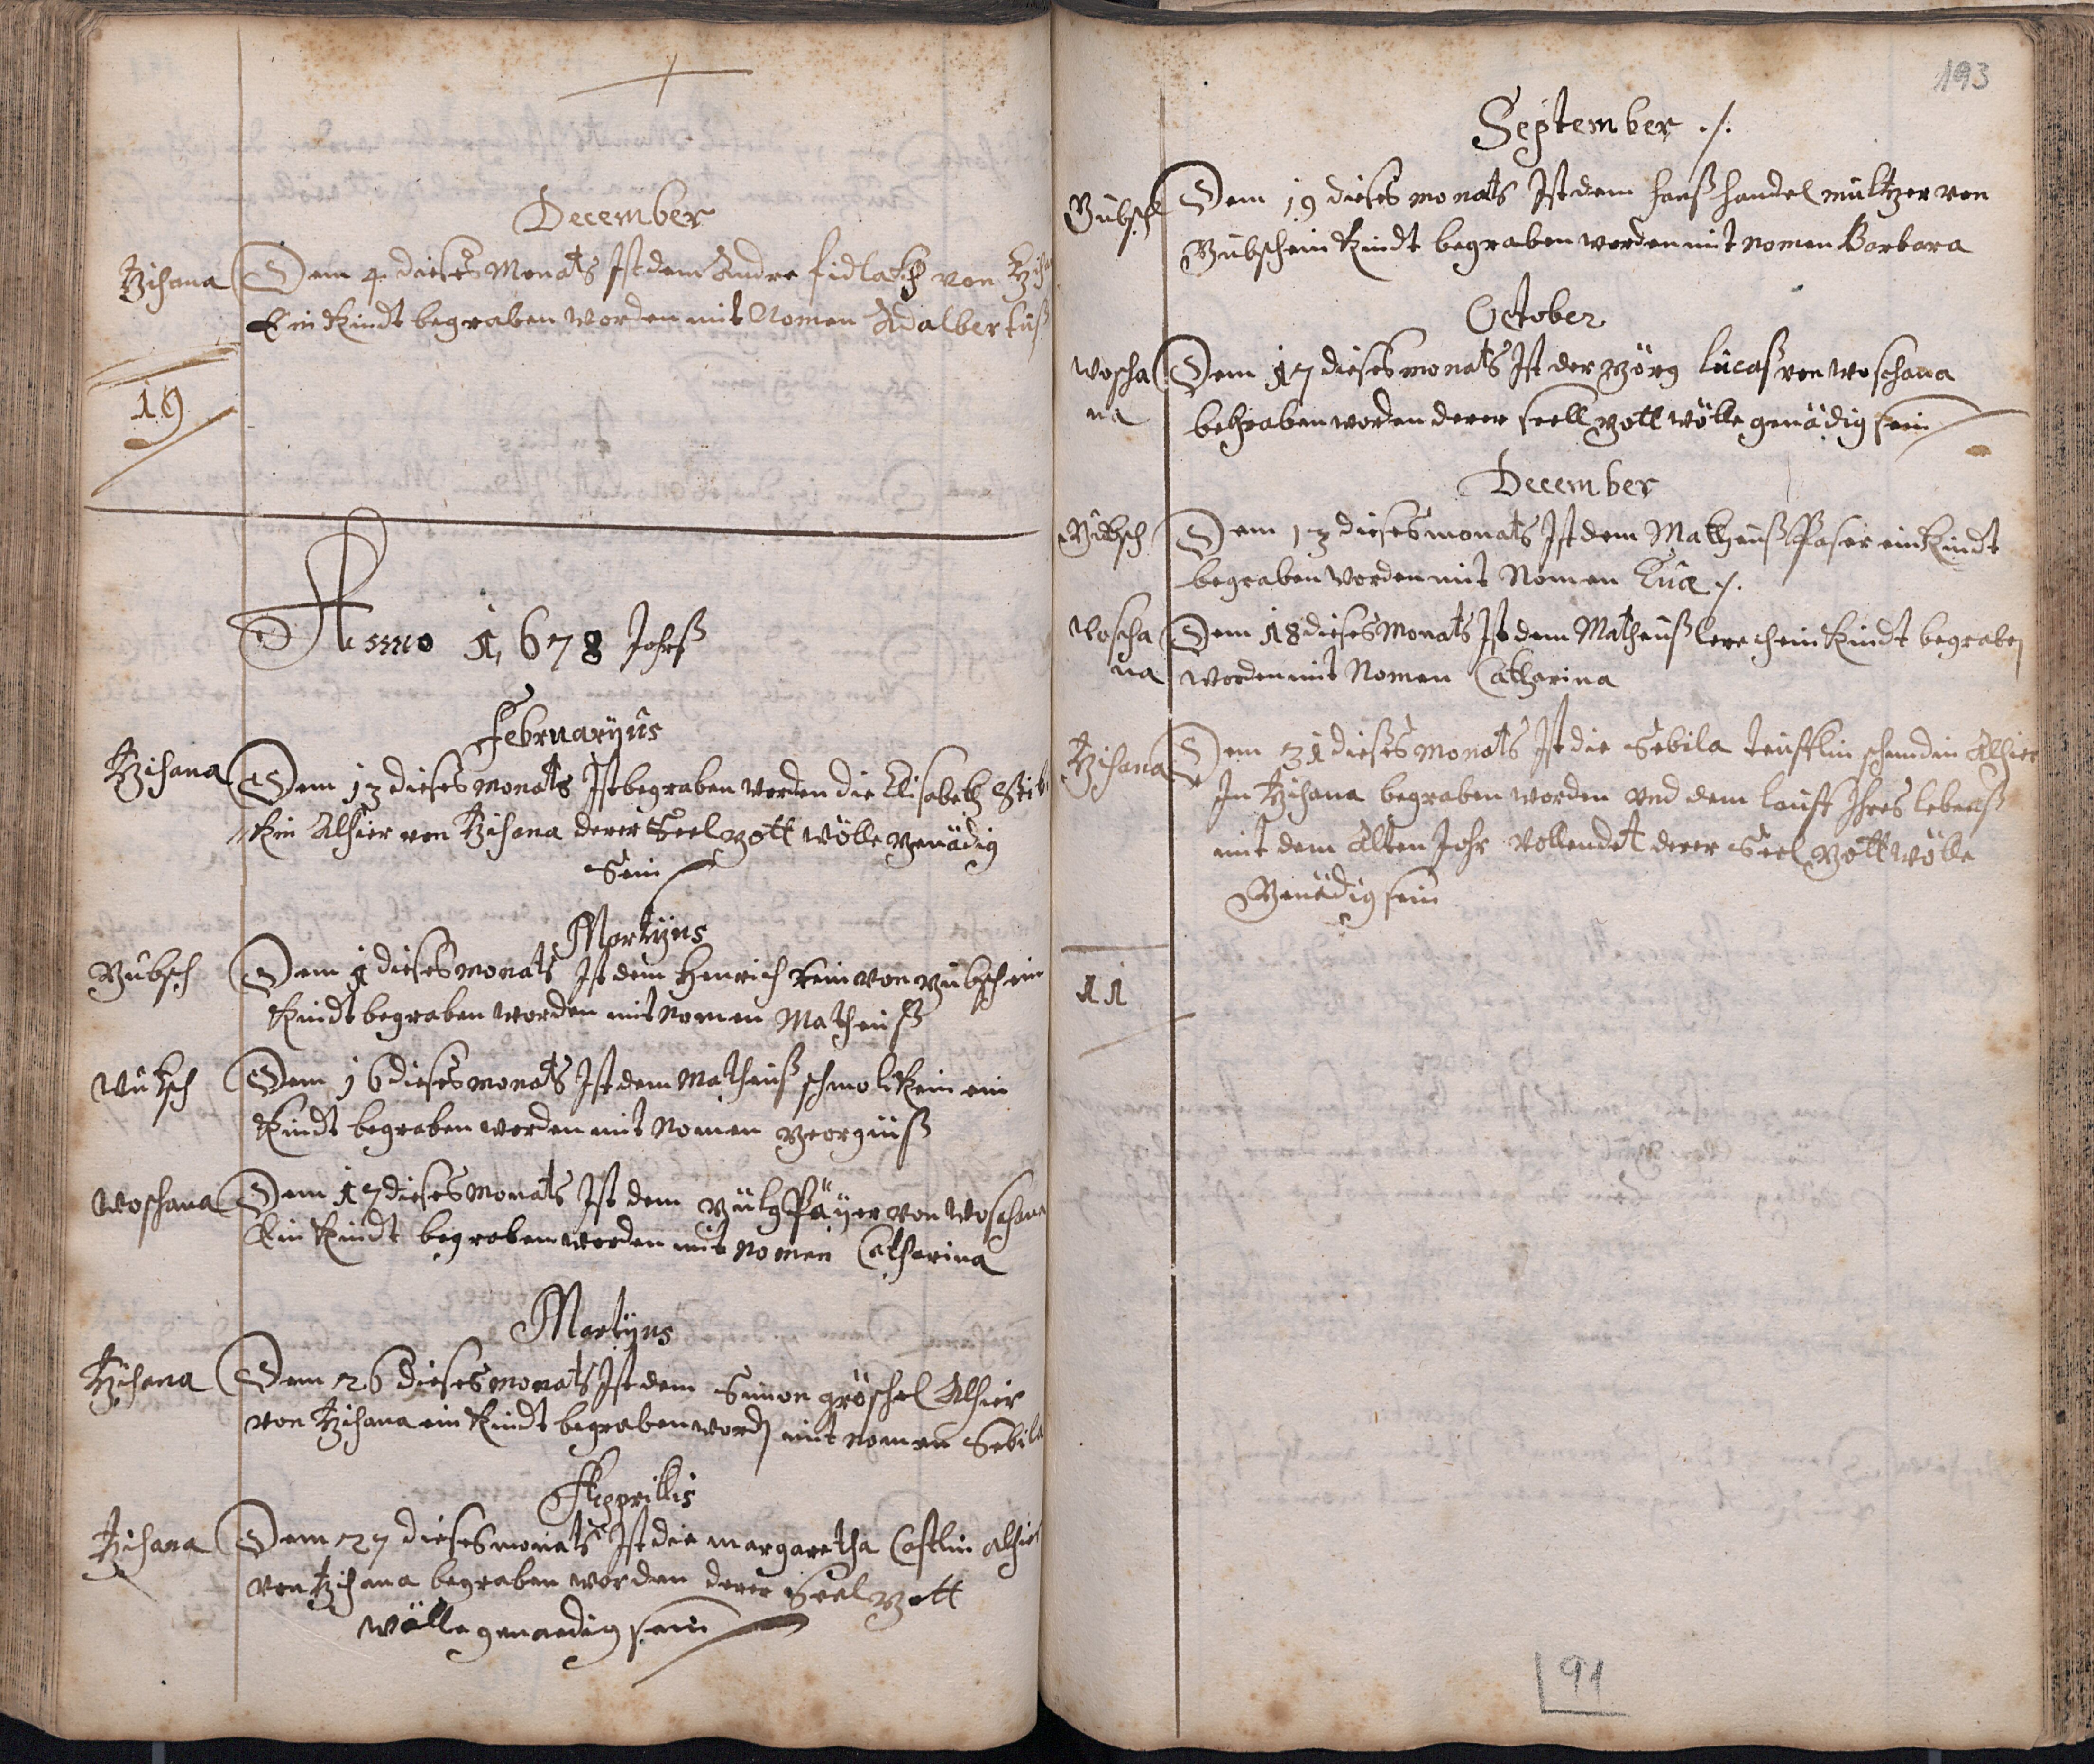 December
Tzihana Dem 4. dieses Monats Ist dem Andre fidlatsch von
Ein Kindt begraben worden mit Nomen Adalbertuß
19
Anno 1,678 Johrß
Februaryus
Tzihana Dem 13 dieses monats Ist begraben worden die Elisabeth
Alhier von Tzihana derer Seel Gott wölle Genädig
Sein
Martyus
Gubsch Dem 1 dieses monats Ist dem Henrich von Gubsch ein
Kindt begraben worden mit nomen Matheuß
Wutzsch Dem 16 dieses monats Ist dem Matheuß ein
Kindt begraben worden mit Nomen Georgiuß
Woschana Dem 17 dieses Monats Ist dem von Woschana
Ein Kindt begroben worden mit nomen Catharina
Martyus
Tzihana Dem 26 dieses monats Ist dem Simon gröschel Alhier
von Tzihana ein Kindt begraben word mit nomen Sebila
Apprillis
Tzihana Dem 27 dieses monats Ist die margaretha Castlin alhier
von Tzihana begraben worden derer Seel Gott
wölle genaedig sein
193
September ./.
Gubsch Dem 19 dieses monats Ist dem hanß handel mültzer von
Gubsch ein Kindt begraben worden mit nomen Barbara
October
Woscha Dem 17 dieses monats Ist der Görg Lucaß von Woschana
na begraben worden derer seell Gott wölle genädig sein
December
Gubsch Dem 13 dieses monats Ist dem Matheuß Paser ein Kindt
begraben worden mit Nomen Eua ./.
Woscha Dem 18 dieses Monats Ist dem Matheuß lerch ein Kindt begraben
na worden mit Nomen Catharina
Tzihana Dem 31 dieses monats Ist die Sebila teufflin schmidin Alhier
In Tzihana begraben worden vnd dem lauff Ihres lebenß
mit dem Alten Johr Vollendet derer Seel Gott wölle
Genädig sein
11
91